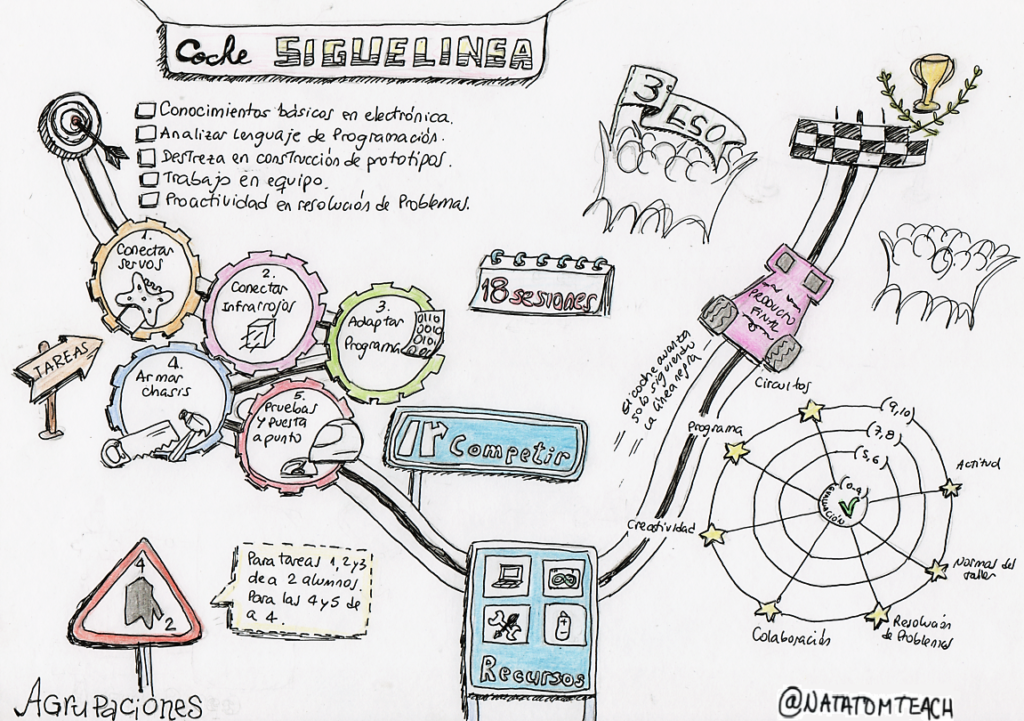 Coche SIGUELINEA
Conocimientos básicos en electrónica.
Analizar Lenguaje de Programación.
Destreza en construcción de prototipos.
Trabajo en equipo.
Proactividad en resolución de Problemas.
3º
ESO
1.
Conectar
servos
2.
Conectar
Infrarrojos
3.
Adaptar
Programa
0110
0010
0101
4.
Armar
chasis
5.
Pruebas
y puesta
a punto
TAREAS
18 sesiones
Competir
El coche avanza
solo siguiendo
la línea negra
PRODUCTO
FINAL
Circuitos
Programa
Creatividad
Colaboración
Resolución
de Problemas
Normas del
taller
Actitud
(9,10)
(7,8)
(5,6)
(0-4)
4
2
Para tareas 1, 2 y 3
de a 2 alumnos.
Para las 4 y 5 de
a 4.
Agrupaciones
Recursos
@NATATOMTEACH